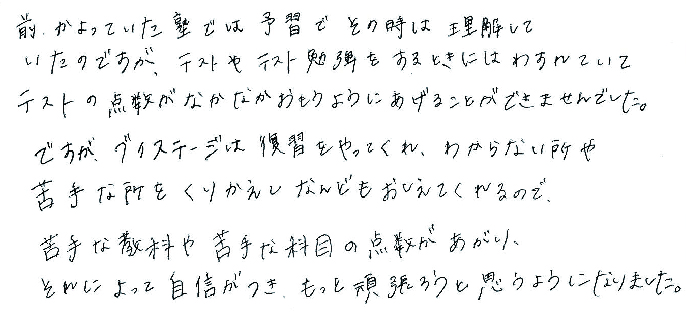 前、かよっていた塾では予習でその時は理解して
いたのですが、テストやテスト勉強をするときにはわすれていて
テストの点数がなかなかおもうようにあげることができませんでした。
ですが、ブイステージは復習をやってくれ、わからない所や
苦手な所をくりかえしなんどもおしえてくれるので、
苦手な教科や苦手な科目の点数があがり、
それによって自信がつき、もっと頑張ろうと思うようになりました。